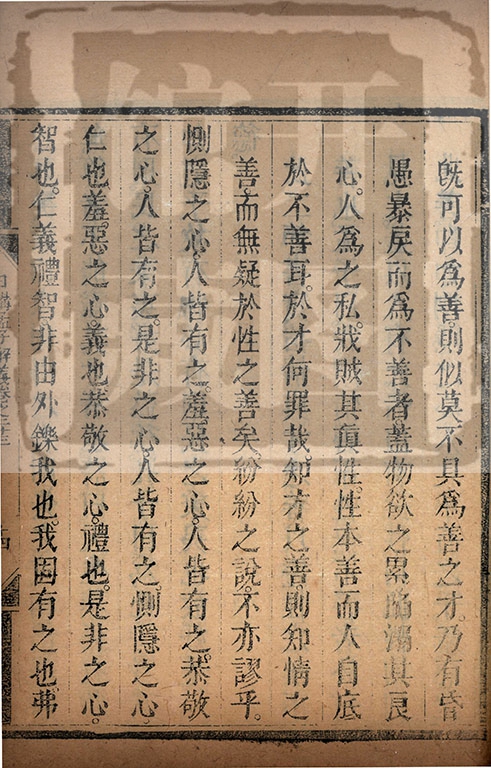 既可以爲善。則似莫不具爲善之才。乃有昏
愚暴戾而爲不善者蓋物欲之累陷溺其良
心。人爲之私。戕賊其眞性。性本善而人自底
於不善耳。於才何罪哉。知才之善。則知情之
善。而無疑於性之善矣。紛紛之說。不亦謬乎。
惻隱之心。人皆有之。羞惡之心。人皆有之。恭敬
之心。人皆有之。是非之心。人皆有之。惻隱之心。
仁也。羞惡之心。義也。恭敬之心。禮也。是非之心。
智也。仁義禮智。非由外鑠我也。我固有之也。弗